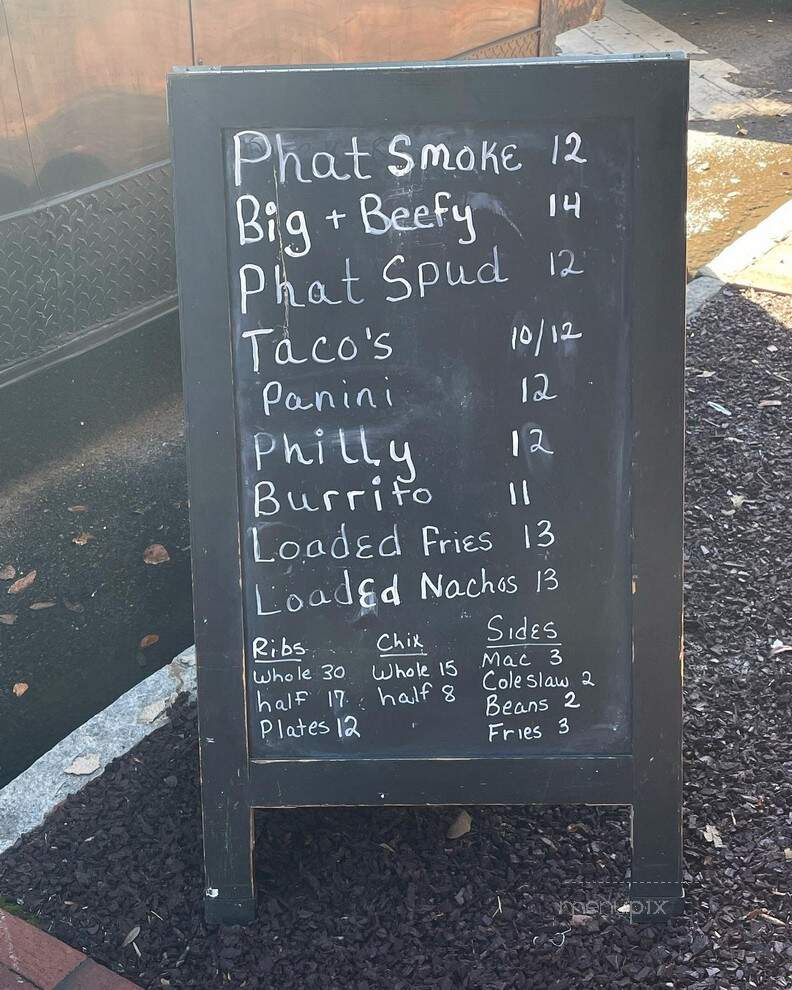 Phat Smoke 12
Big + Beefy 14
Phat Spud 12
Taco's 10/12
Panini 12
Philly 12
Burrito 11
Loaded Fries 13
Loaded Nachos 13
Ribs
Whole 30
half 17
Plates 12
Chix
Whole 15
half 8
Sides
Mac 3
Coleslaw 2
Beans 2
Fries 3
menupix